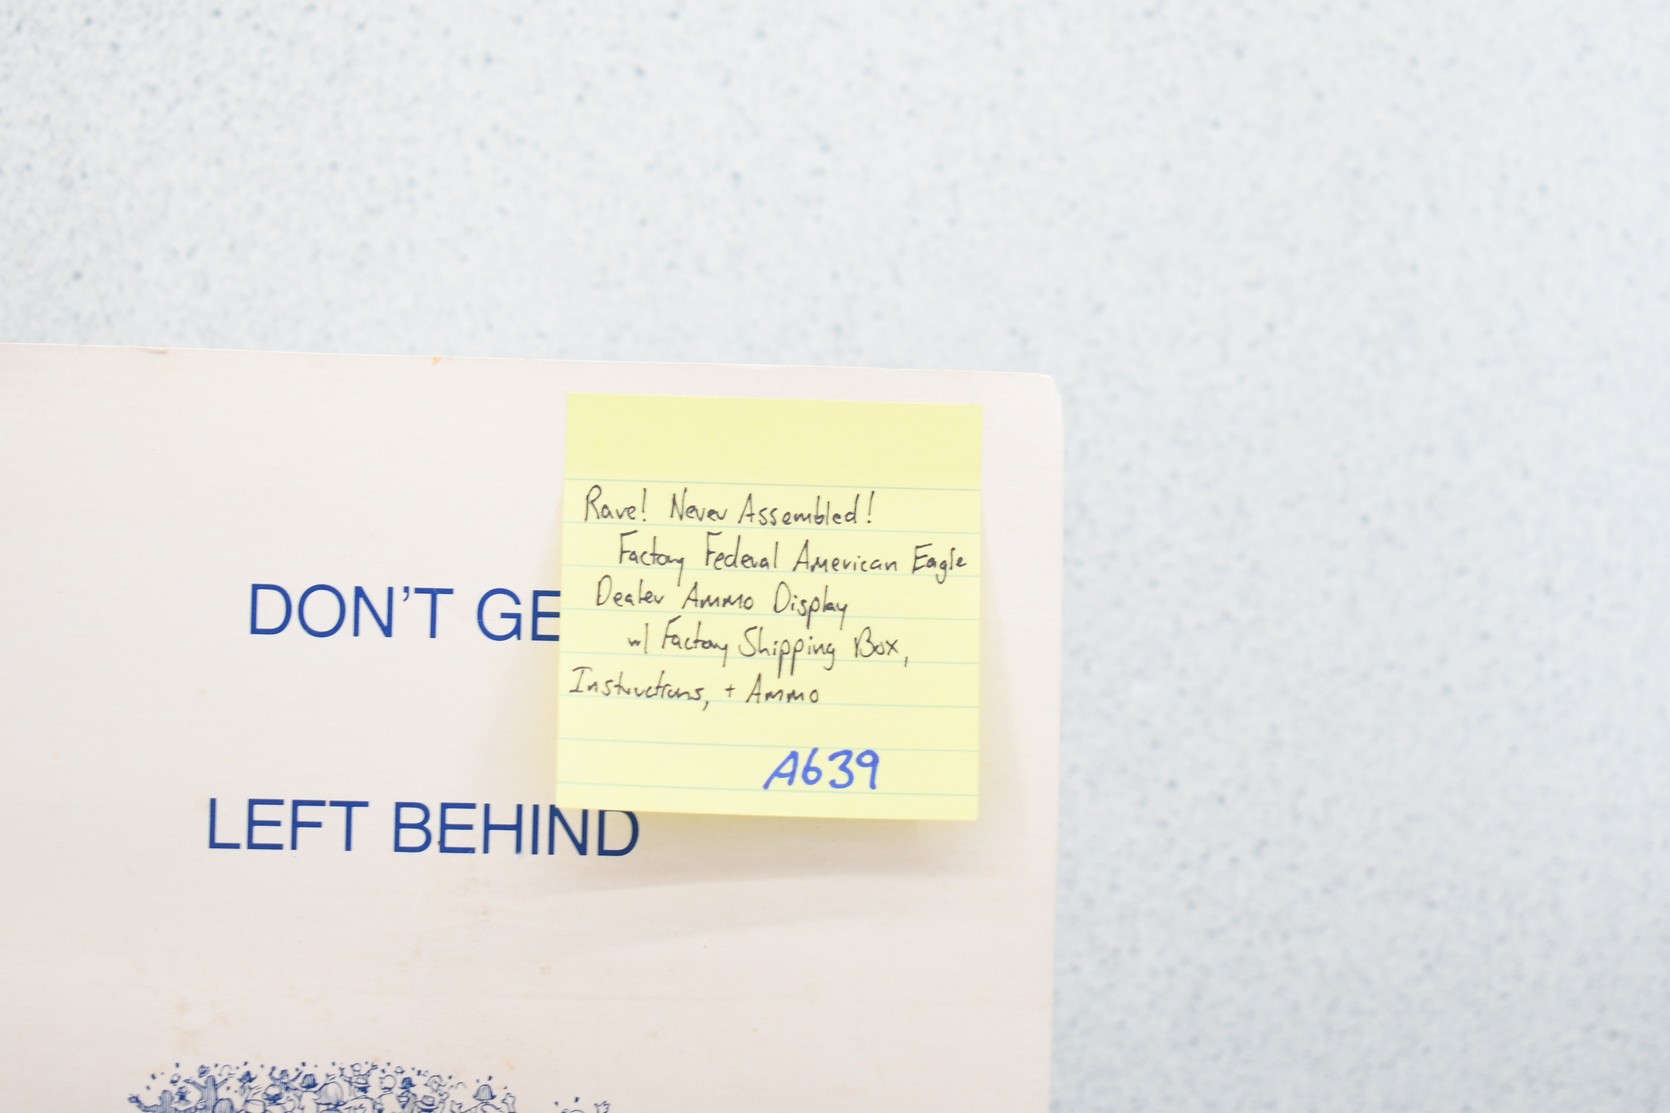 Rare! Never Assembled!
Factory Federal American Eagle
Dealer Ammo Display
w/ Factory Shipping Box,
Instructions, + Ammo
A639
DON'T GE
LEFT BEHIND